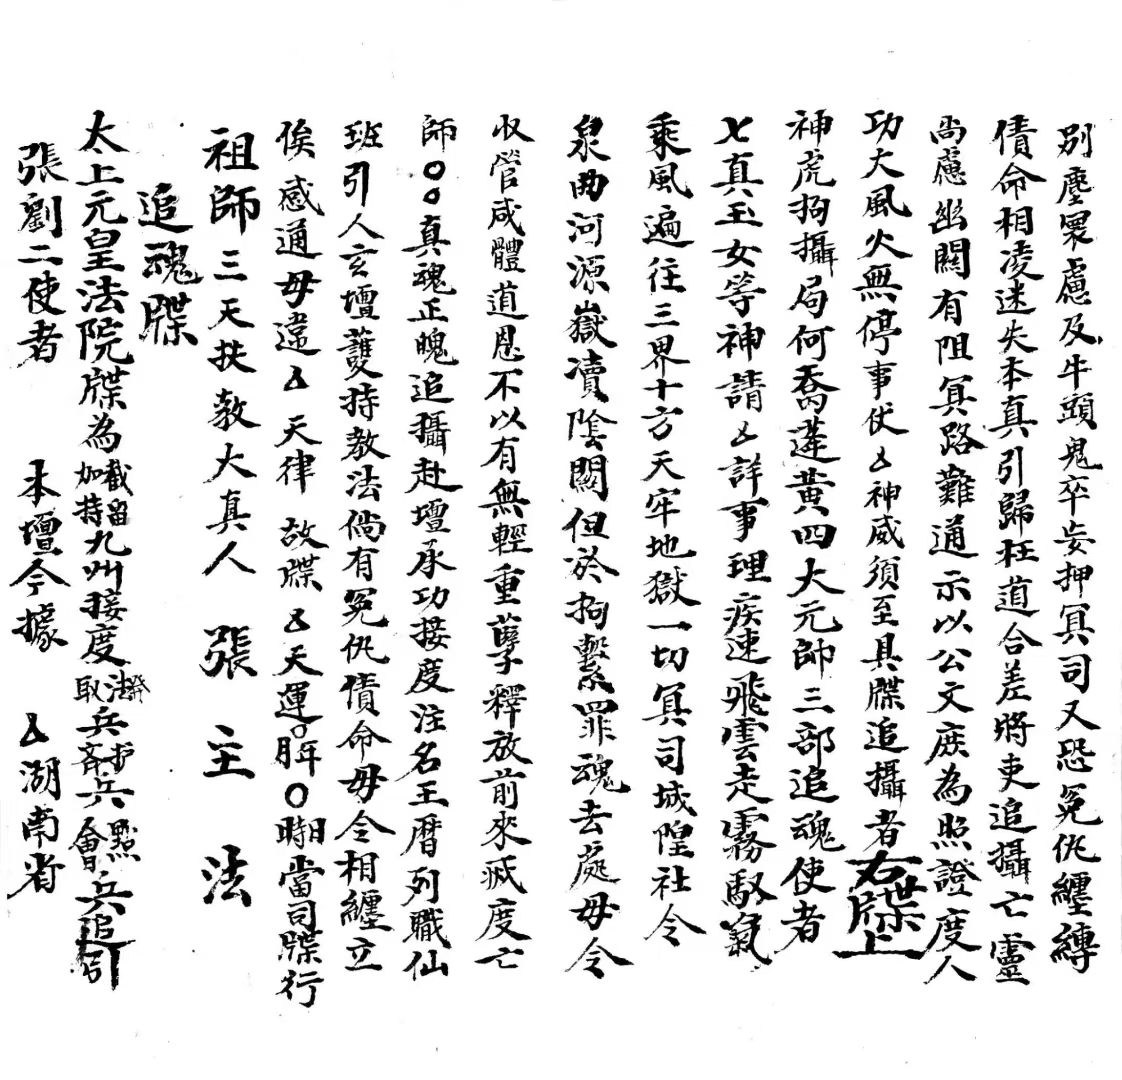 別塵寰慮及牛頭鬼卒妄押冥司又恐冤仇纏縛
債命相凌迷失本真引歸枉道合差將吏追攝亡靈
尚慮幽關有阻冥路難通示以公文庶為照證度人
功大風火無停事伏厶神威須至具牒追攝者右牒上
神虎拘攝局何喬蓮黃四大元帥三部追魂使者
七真玉女等神請厶詳事理疾速飛雲走霧馭氣
乘風遍往三界十方天牢地獄一切冥司城隍社令
泉曲河源嶽瀆陰關但於拘繫罪魂去處毋令
收管咸體道恩不以有無輕重孽釋放前來滅度亡
師〇〇真魂正魄追攝赴壇承功接度注名王曆列職仙
班引人玄壇護持教法倘有冤仇債命毋令相纏立
俟感通毋違厶天律 故牒 厶天運〇年月〇日時當司牒行
祖師三天扶教大真人 張 主 法
追魂牒
太上元皇法院牒為截留加持九州接度法取兵齐兵點會兵追引
張劉二使者 本壇今據 厶湖南省